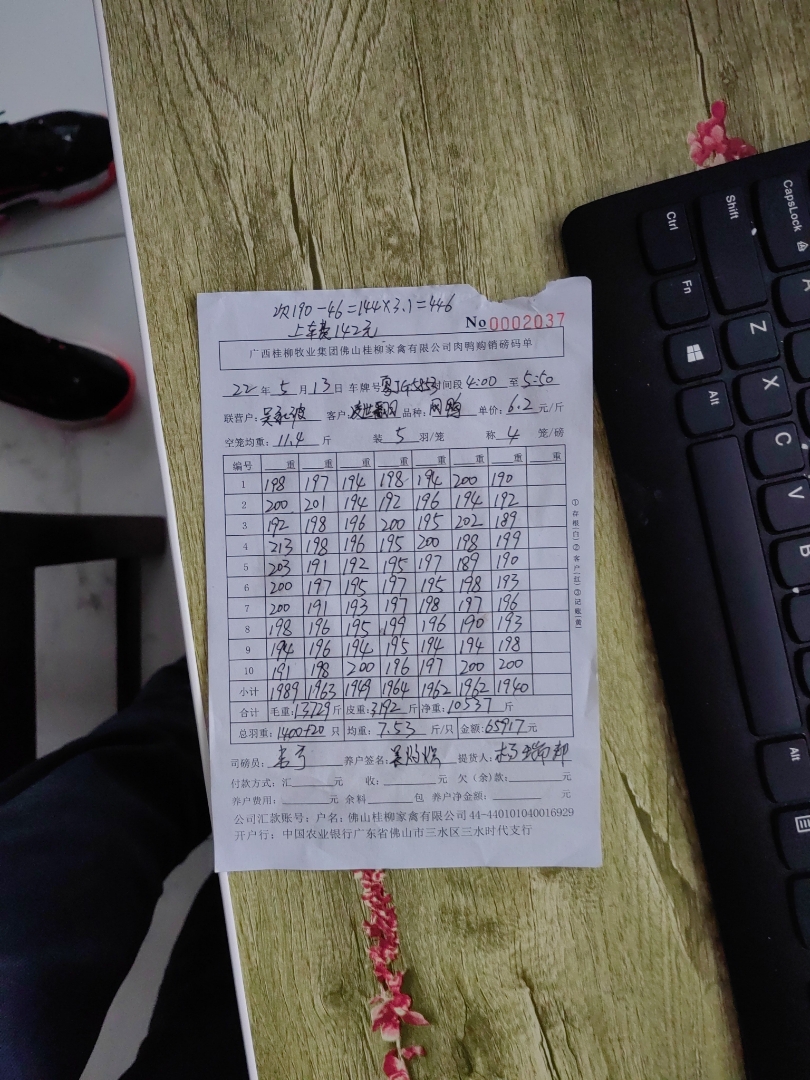 次190-46=144×3.1=446
上车费142元
No 0002037
广西桂柳牧业集团佛山桂柳家禽有限公司肉鸭购销磅码单
22年5月13日 车牌号 时间段4:00至5:50
联营户: 客户: 品种: 单价:6.2元/斤
空笼均重:11.4斤 装5羽/笼 称4笼/磅
编号 重 重 重 重 重 重 重 重
1 198 197 194 198 194 200 190
2 200 201 194 192 196 194 192
3 192 198 196 200 195 202 189
4 213 198 196 195 200 198 199
5 203 191 192 195 197 189 190
6 200 197 195 197 195 198 193
7 200 191 193 197 198 197 196
8 198 196 195 199 196 190 193
9 194 196 194 195 194 194 198
10 191 198 200 196 197 200 200
小计 1989 1963 1949 1964 1962 1962 1940
合计 毛重:13729斤 皮重:3192斤 净重:10537斤
总羽重:1400+20只 均重:7.53斤/只 金额:65917元
司磅员: 养户签名: 提货人:
付款方式:汇 元 收: 元 欠(余)款: 元
养户费用: 元 余料 包 养户净金额: 元
公司汇款账号:户名:佛山桂柳家禽有限公司44-440101040016929
开户行:中国农业银行广东省佛山市三水区三水时代支行
①存根(白)②客户(红)③记账(黄)
Ctrl
Shift
CapsLock
Fn
Z
A
Alt
X
C
V
B
N
Alt